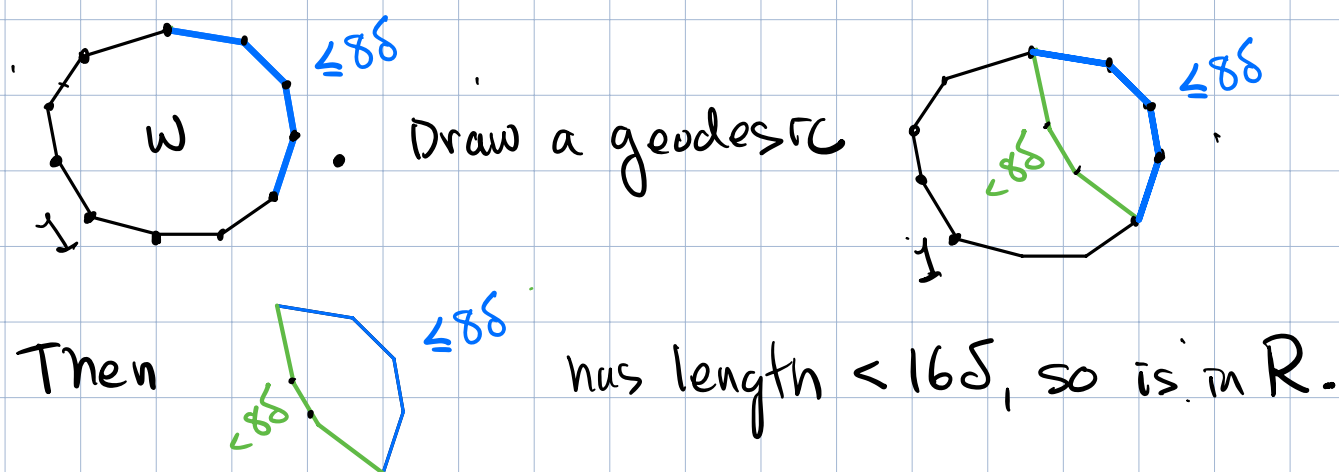 ≤8δ
W
1
. Draw a geodesic
≤8δ
<8δ
1
Then
≤8δ
<8δ
has length < 16δ, so is in R.